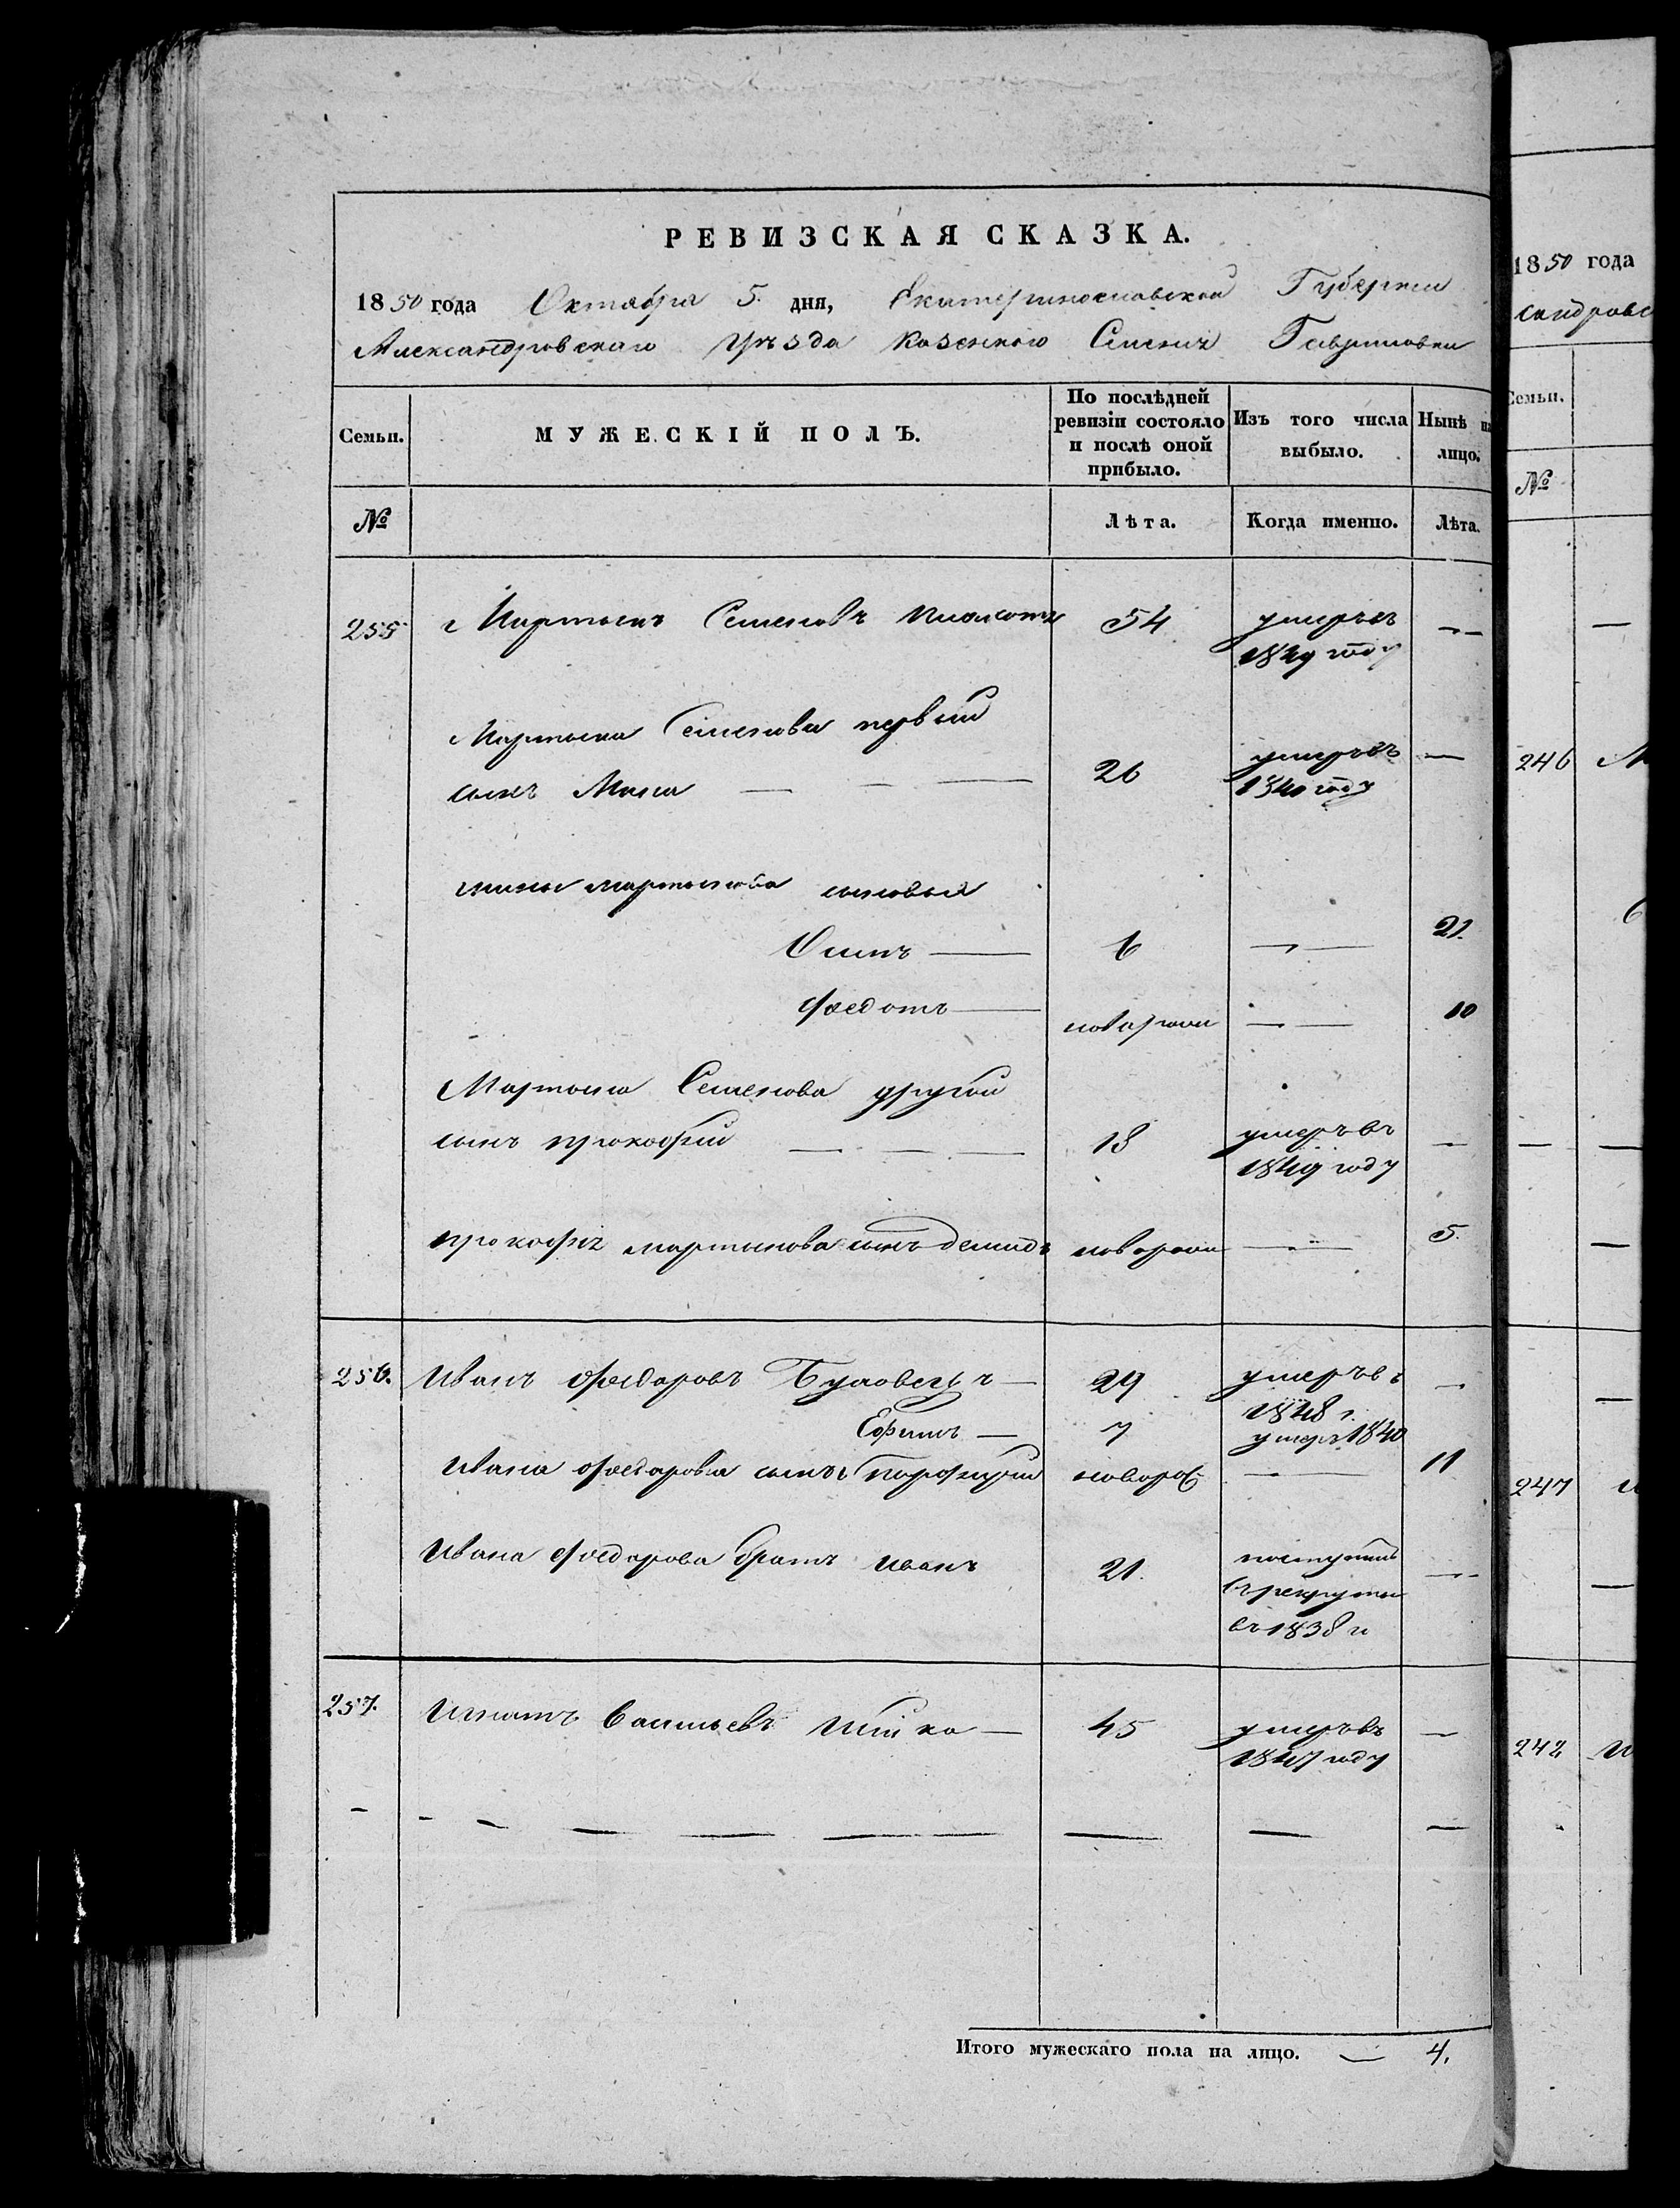 РЕВИЗСКАЯ СКАЗКА.
1850 года Октября 5. дня, Екатеринославской Губернии
Александровскаго Уѣзда Казенного Селенія Гавриловки
Семьи. МУЖЕСКІЙ ПОЛЪ. По послѣдней ревизіи состояло и послѣ оной прибыло. Изъ того числа выбыло. Нынѣ на лицо.
№ Лѣта. Когда именно. Лѣта.
255 Мартынъ Семеновъ 54 умеръ въ —
1849 году
Мартына Семенова первый
сынъ Мина — — — 26 умеръ въ —
1840 году
мины мартынова сыновья
Осипъ — 6 — 21.
Федотъ — новорож — 10
Мартына Семенова другой
сынъ прокофій — — — 18 умеръ въ —
1849 году
прокофія мартынова сынъ демидъ новорож — 5.
256. Иванъ Федоровъ — 29 умеръ въ —
1848 г.
Ефимъ — 7 умеръ 1840
Ивана Федорова сынъ Порфирій новорож — 11
Ивана Федорова братъ Иванъ 21. поступилъ —
въ рекруты
въ 1838 г
257. Игнатъ Васильевъ — 45 умеръ въ —
1847 году
Итого мужескаго пола на лицо. — 4.
1850 года
сандровс
Семьи.
№
246
247
242